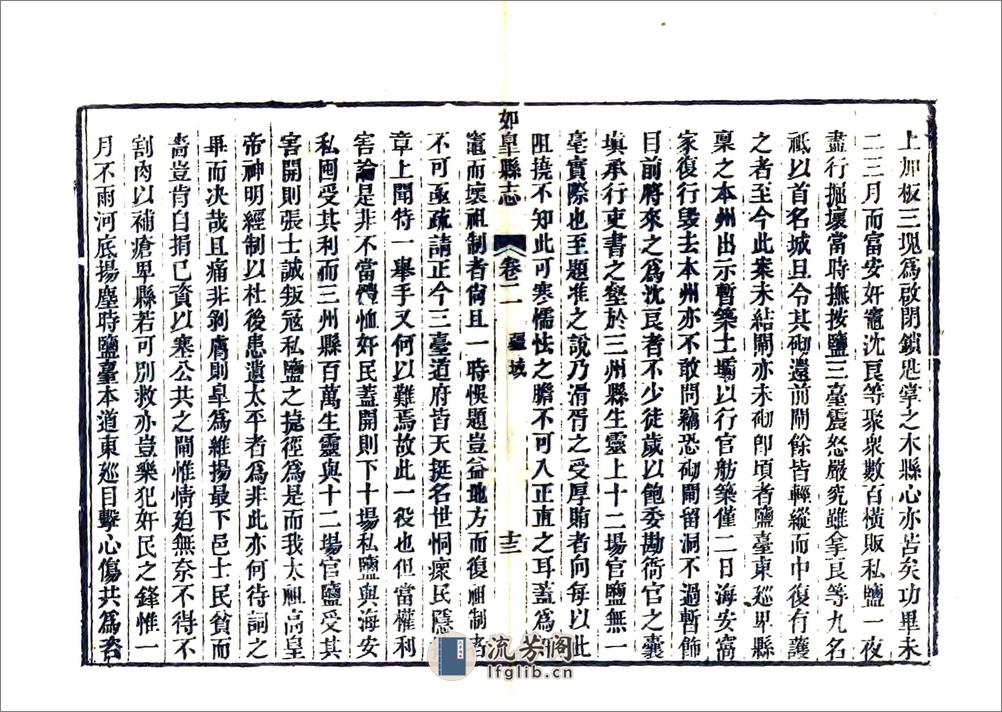 上加板三塊爲啟閉鎖匙掌之本縣心亦苦矣功畢未
二三月而富安奸竈沈良等聚衆數百橫販私鹽一夜
盡行掘壞當時撫按鹽三臺震怒嚴究雖拿良等九名
祗以首名城旦令其砌還前閘餘皆輕縱而中復有護
之者至今此案未結閘亦未砌卽頃者鹽臺東廵卑縣
稟之本州出示暫築土壩以行官舫築僅二日海安窩
家復行毀去本州亦不敢問竊恐砌閘留洞不過暫飾
目前將來之爲沈良者不少徒歲以飽委勘衙官之囊
填承行吏書之壑於三州縣生靈上十二場官鹽無一
毫實際也至題准之說乃滑胥之受厚賄者向每以此
阻撓不知此可寒懦怯之膽不可入正直之耳蓋爲
如臯縣志
卷二
疆域
十三
竈而壞祖制者尙且一時悞題豈益地方而復祖制者
不可亟疏請正今三臺道府皆天挺名世恫瘝民隱
章上聞特一舉手又何以難焉故此一役也但當權利
害論是非不當體恤奸民蓋開則下十場私鹽與海安
私囤受其利而三州縣百萬生靈與十二場官鹽受其
害開則張士誠叛冦私鹽之捷徑爲是而我太祖高皇
帝神明經制以杜後患遺太平者爲非此亦何待詞之
畢而决哉且痛非剝膚則臯爲維揚最下邑士民貧而
嗇豈肯自捐己資以塞公共之閘惟情廹無奈不得不
割肉以補瘡卑縣若可別救亦豈樂犯奸民之鋒惟一
月不雨河底揚塵時鹽臺本道東廵目擊心傷共爲咨
流芳閣
lfglib.cn